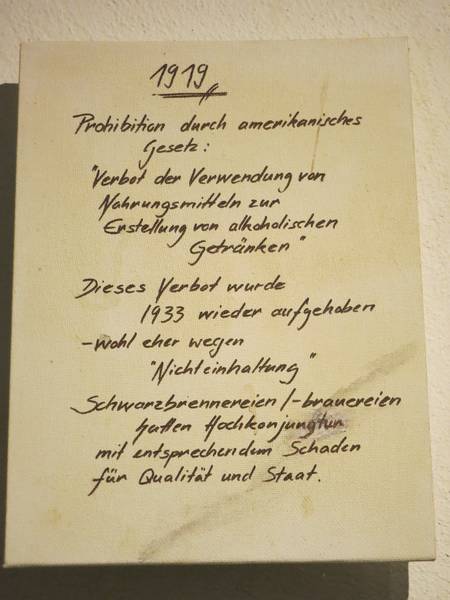 1919
Prohibition durch amerikanisches
Gesetz:
"Verbot der Verwendung von
Nahrungsmitteln zur
Erstellung von alkoholischen
Getränken"
Dieses Verbot wurde
1933 wieder aufgehoben
-wohl eher wegen
"Nichteinhaltung"
Schwarzbrennereien/-brauereien
hatten Hochkonjungtur
mit entsprechendem Schaden
für Qualität und Staat.